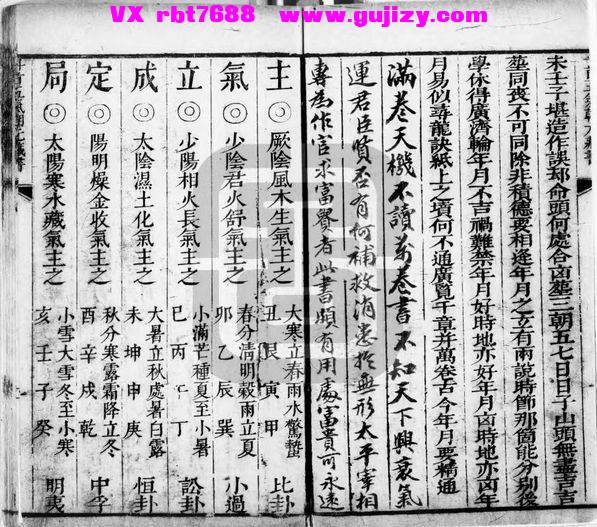 VX rbt7688 www.gujizy.com
未壬子堪造作誤却命頭何處合凶塟三朝五七日日子山頭無
塟同喪不可同除非積德要相逢年月之立有兩說時節那箇能分別後
學休得廣濟輪年月不吉禍難禁年月好時地亦好年月凶時地亦凶年
月易似尋龍訣紙上之墳何不通廣覓千章并萬卷古今年月要精通
滿卷天機不讀萬卷書不知天下興衰氣
運君臣賢否有何補救消患於無形太平宰相
專為作官求富貴者此書頗有用處富貴可永遠
主 ◎ 厥陰風木生氣主之 大寒立春雨水驚蟄 丑艮寅甲 比卦
氣 ◎ 少陰君火舒氣主之 春分清明穀雨立夏 卯乙辰巽 小過
立 ◎ 少陽相火長氣主之 小滿芒種夏至小暑 巳丙午丁 訟卦
成 ◎ 太陰濕土化氣主之 大暑立秋處暑白露 未坤申庚 恒卦
定 ◎ 陽明燥金收氣主之 秋分寒露霜降立冬 酉辛戌乾 中孚
局 ◎ 太陽寒水藏氣主之 小雪大雪冬至小寒 亥壬子癸 明夷